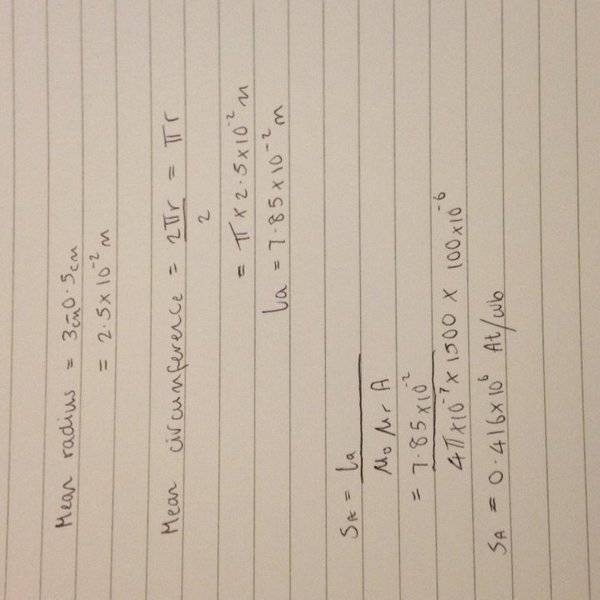 Mean radius = 3cm-0.5cm
= 2.5x10⁻² m
Mean circumference = 2πr/2 = πr
= π x 2.5x10⁻² m
la = 7.85x10⁻² m
SA = la / μ₀ μr A
= 7.85x10⁻² / 4πx10⁻⁷ x 1500 x 100x10⁻⁶
SA = 0.416x10⁶ At/wb